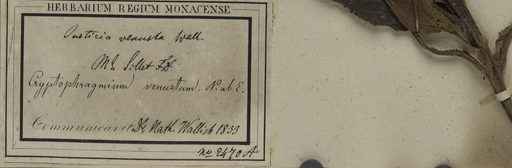 HERBARIUM REGIUM MONACENSE
Justicia venusta Wall.
Mt. Sillet
Cryptophragmium venustum. N. ab E.
Communicavit Dr. Nath. Wallich 1833
no 2470 A